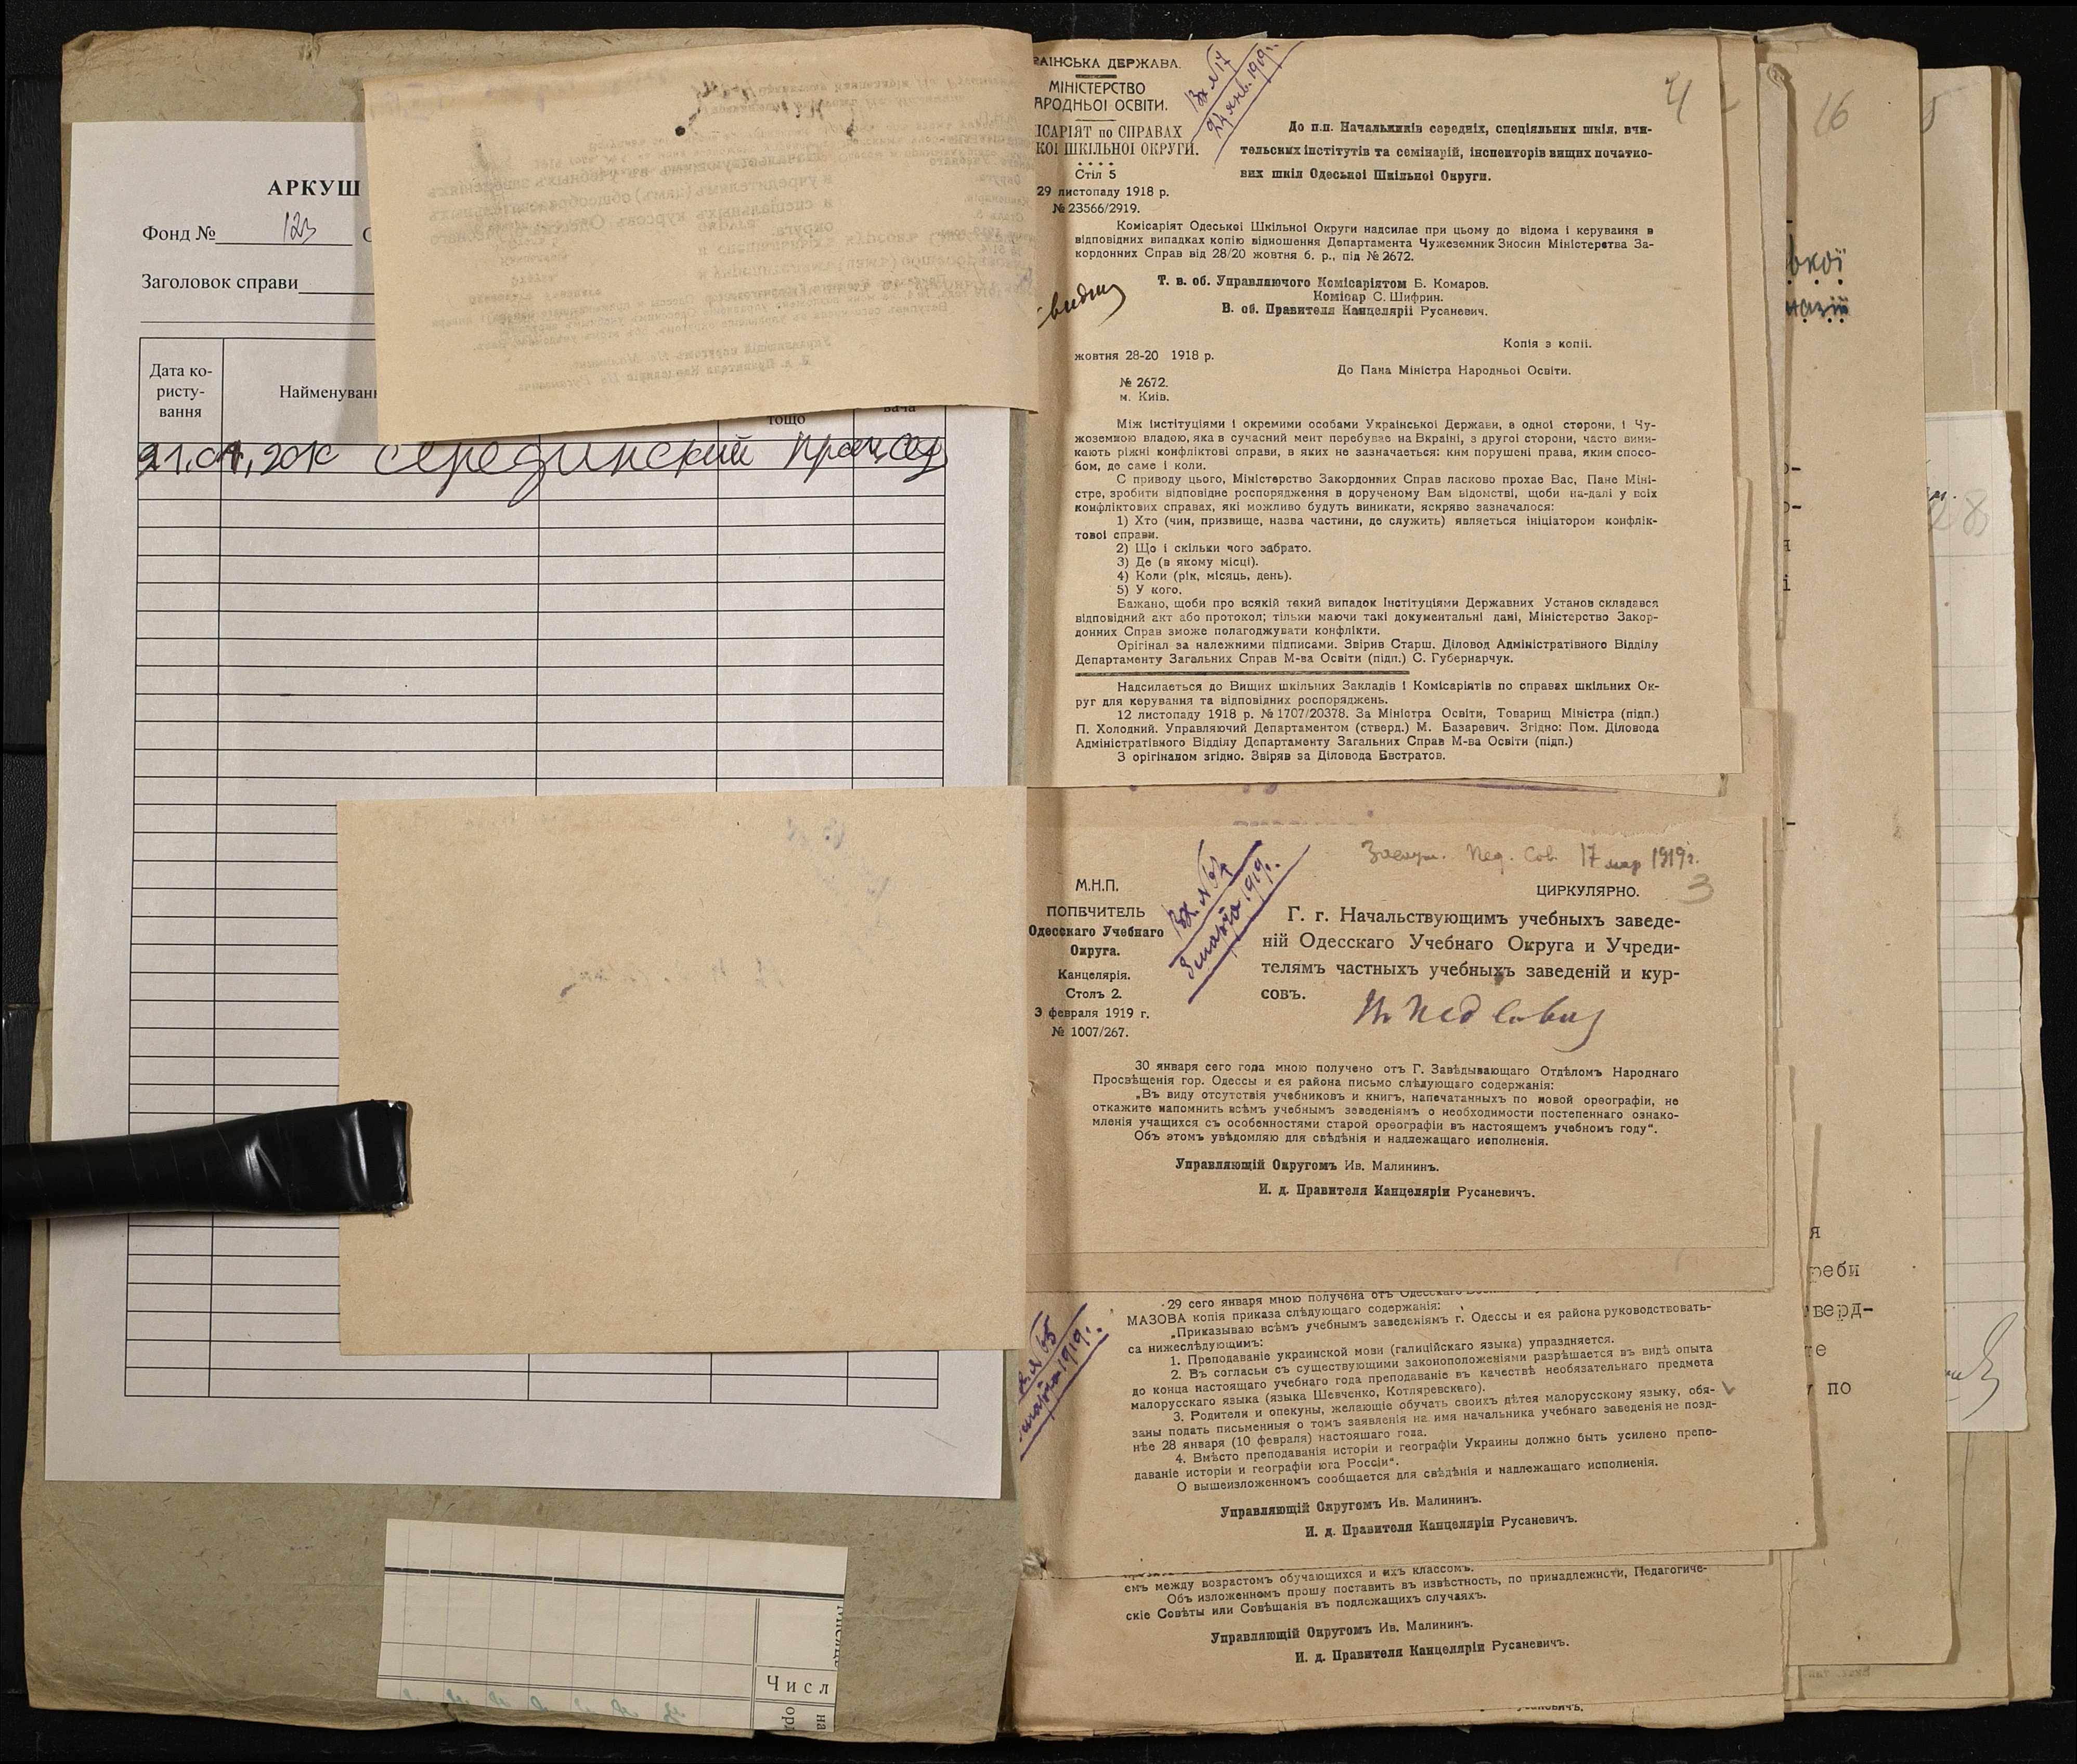 АРКУШ
Фонд № 123
Заголовок справи
Дата ко-
ристу-
вання
тощо
вача
Числ
РАЇНСЬКА ДЕРЖАВА.
МІНІСТЕРСТВО
АРОДНЬОІ ОСВІТИ.
ІСАРІЯТ по СПРАВАХ
КОІ ШКІЛЬНОІ ОКРУГИ.
Стіл 5
29 листопаду 1918 р.
№ 23566/2919.
Вх № 17
1919г.
4
До п.п. Начальників середніх, спеціяльних шкіл, вчи-
тельских інститутів та семінарій, інспекторів вищих початко-
вих шкіл Одеськоі Шкільноі Округи.
Комісаріят Одеськоі Шкільноі Округи надсилае при цьому до відома і керування в
відповідних випадках копію відношення Департамента Чужеземник Зносин Міністерства За-
кордонних Справ від 28/20 жовтня б. р., під № 2672.
Т. в. об. Управляючого Комісаріятом Б. Комаров.
Комісар С. Шифрин.
В. об. Правителя Канцеляріі Русаневич.
Копія з копіі.
жовтня 28-20 1918 р.
До Пана Міністра Народньоі Освіти.
№ 2672.
м. Київ.
Між інстітуціями і окремими особами Украінськоі Держави, в одноі сторони, і Чу-
жоземною владою, яка в сучасний мент перебувае на Вкраіні, з другоі сторони, часто вини-
кають ріжні конфліктові справи, в яких не зазначаеться: ким порушені права, яким спосо-
бом, де саме і коли.
С приводу цього, Міністерство Закордонних Справ ласково прохае Вас, Пане Міні-
стре, зробити відповідне роспорядження в дорученому Вам відомстві, щоби на-далі у всіх
конфліктових справах, які можливо будуть виникати, яскряво зазначалося:
1) Хто (чин, призвище, назва частини, де служить) являеться ініціатором конфлік-
товоі справи.
2) Що і скільки чого забрато.
3) Де (в якому місці).
4) Коли (рік, місяць, день).
5) У кого.
Бажано, щоби про всякій такий випадок Інстітуціями Державних Установ складався
відповідний акт або протокол; тільки маючи такі документальні дані, Міністерство Закор-
донних Справ зможе полагоджувати конфлікти.
Орігінал за належними підписами. Звірив Старш. Діловод Адміністратівного Відділу
Департаменту Загальних Справ М-ва Освіти (підп.) С. Губернарчук.
Надсилаеться до Вищих шкільних Закладів і Комісаріятів по справах шкільних Ок-
руг для керування та відповідних роспоряджень.
12 листопаду 1918 р. № 1707/20378. За Міністра Освіти, Товарищ Міністра (підп.)
П. Холодний. Управляючий Департаментом (стверд.) М. Базаревич. Згідно: Пом. Діловода
Адміністратівного Відділу Департаменту Загальних Справ М-ва Освіти (підп.)
З орігіналом згідно. Звіряв за Діловода Евстратов.
Пед. Сов. 17 мар 1919г.
3
М.Н.П.
ПОПЕЧИТЕЛЬ
Одесскаго Учебнаго
Округа.
Канцелярія.
Столъ 2.
3 февраля 1919 г.
№ 1007/267.
марта 1919г.
ЦИРКУЛЯРНО.
Г. г. Начальствующимъ учебныхъ заведе-
ній Одесскаго Учебнаго Округа и Учреди-
телямъ частныхъ учебныхъ заведеній и кур-
совъ.
30 января сего года мною получено отъ Г. Завѣдывающаго Отдѣломъ Народнаго
Просвѣщенія гор. Одессы и ея района письмо слѣдующаго содержанія:
„Въ виду отсутствія учебниковъ и книгъ, напечатанныхъ по новой ореографіи, не
откажите напомнить всѣмъ учебнымъ заведеніямъ о необходимости постепеннаго ознако-
мленія учащихся съ особенностями старой ореографіи въ настоящемъ учебномъ году“.
Объ этомъ увѣдомляю для свѣдѣнія и надлежащаго исполненія.
Управляющій Округомъ Ив. Малининъ.
И. д. Правителя Канцеляріи Русаневичъ.
№ 65
марта 1919г.
29 сего января мною получена отъ Одесскаго
МАЗОВА копія приказа слѣдующаго содержанія:
„Приказываю всѣмъ учебнымъ заведеніямъ г. Одессы и ея района руководствовать-
са нижеслѣдующимъ:
1. Преподаваніе украинской мови (галиційскаго языка) упраздняется.
2. Въ согласьи съ существующими законоположеніями разрѣшается въ видѣ опыта
до конца настоящаго учебнаго года преподаваніе въ качествѣ необязательнаго предмета
малорусскаго языка (языка Шевченко, Котляревскаго).
3. Родители и опекуны, желающіе обучать своихъ дѣтея малорусскому языку, обя-
заны подать письменныя о томъ заявленія на имя начальника учебнаго заведенія не позд-
нѣе 28 января (10 февраля) настоящаго года.
4. Вмѣсто преподаванія исторіи и географіи Украины должно быть усилено препо-
даваніе исторіи и географіи юга Россіи“.
О вышеизложенномъ сообщается для свѣдѣнія и надлежащаго исполненія.
Управляющій Округомъ Ив. Малининъ.
И. д. Правителя Канцеляріи Русаневичъ.
емъ между возрастомъ обучающихся и ихъ классомъ.
Объ изложенномъ прошу поставить въ извѣстность, по принадлежности, Педагогиче-
скіе Совѣты или Совѣщанія въ подлежащихъ случаяхъ.
Управляющій Округомъ Ив. Малининъ.
И. д. Правителя Канцеляріи Русаневичъ.
16
28
реби
верд-
по